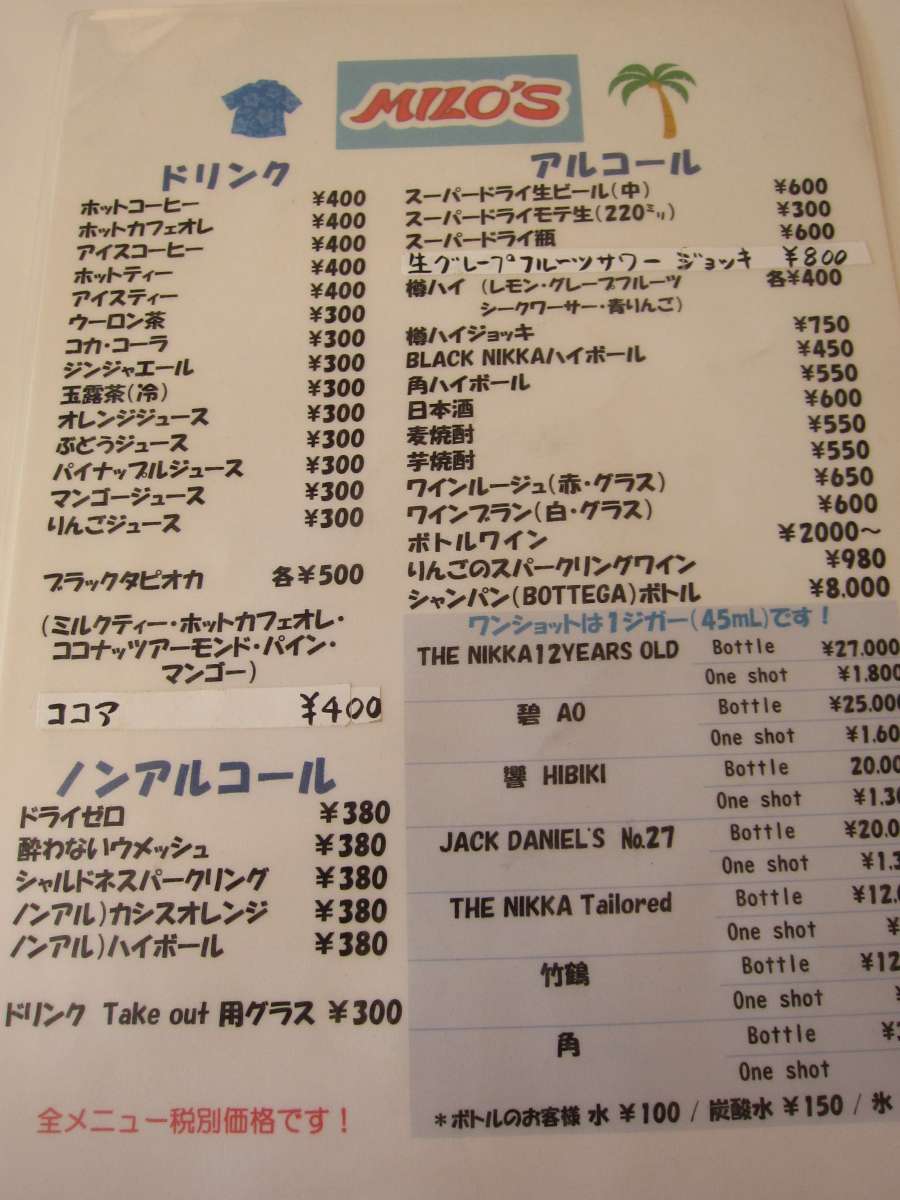 MILO'S
ドリンク
ホットコーヒー ¥400
ホットカフェオレ ¥400
アイスコーヒー ¥400
ホットティー ¥400
アイスティー ¥400
ウーロン茶 ¥300
コカ・コーラ ¥300
ジンジャエール ¥300
玉露茶(冷) ¥300
オレンジジュース ¥300
ぶどうジュース ¥300
パイナップルジュース ¥300
マンゴージュース ¥300
りんごジュース ¥300
ブラックタピオカ 各¥500
(ミルクティー・ホットカフェオレ・
ココナッツアーモンド・パイン・
マンゴー)
ココア ¥400
ノンアルコール
ドライゼロ ¥380
酔わないウメッシュ ¥380
シャルドネスパークリング ¥380
ノンアル)カシスオレンジ ¥380
ノンアル)ハイボール ¥380
ドリンク Take out 用グラス ¥300
全メニュー税別価格です!
アルコール
スーパードライ生ビール(中) ¥600
スーパードライモテ生(220㍉) ¥300
スーパードライ瓶 ¥600
生グレープフルーツサワー ジョッキ ¥800
樽ハイ (レモン・グレープフルーツ 各¥400
シークワーサー・青りんご)
樽ハイジョッキ ¥750
BLACK NIKKAハイボール ¥450
角ハイボール ¥550
日本酒 ¥600
麦焼酎 ¥550
芋焼酎 ¥550
ワインルージュ(赤・グラス) ¥650
ワインブラン(白・グラス) ¥600
ボトルワイン ¥2000～
りんごのスパークリングワイン ¥980
シャンパン(BOTTEGA)ボトル ¥8.000
ワンショットは1ジガー(45mL)です!
THE NIKKA12YEARS OLD Bottle ¥27.000
One shot ¥1.800
碧 AO Bottle ¥25.000
One shot ¥1.60
響 HIBIKI Bottle 20.00
One shot ¥1.30
JACK DANIEL'S No.27 Bottle ¥20.0
One shot ¥1.3
THE NIKKA Tailored Bottle ¥12.
One shot ¥
竹鶴 Bottle ¥12
One shot
角 Bottle ¥
One shot
*ボトルのお客様 水 ¥100 / 炭酸水 ¥150 / 氷